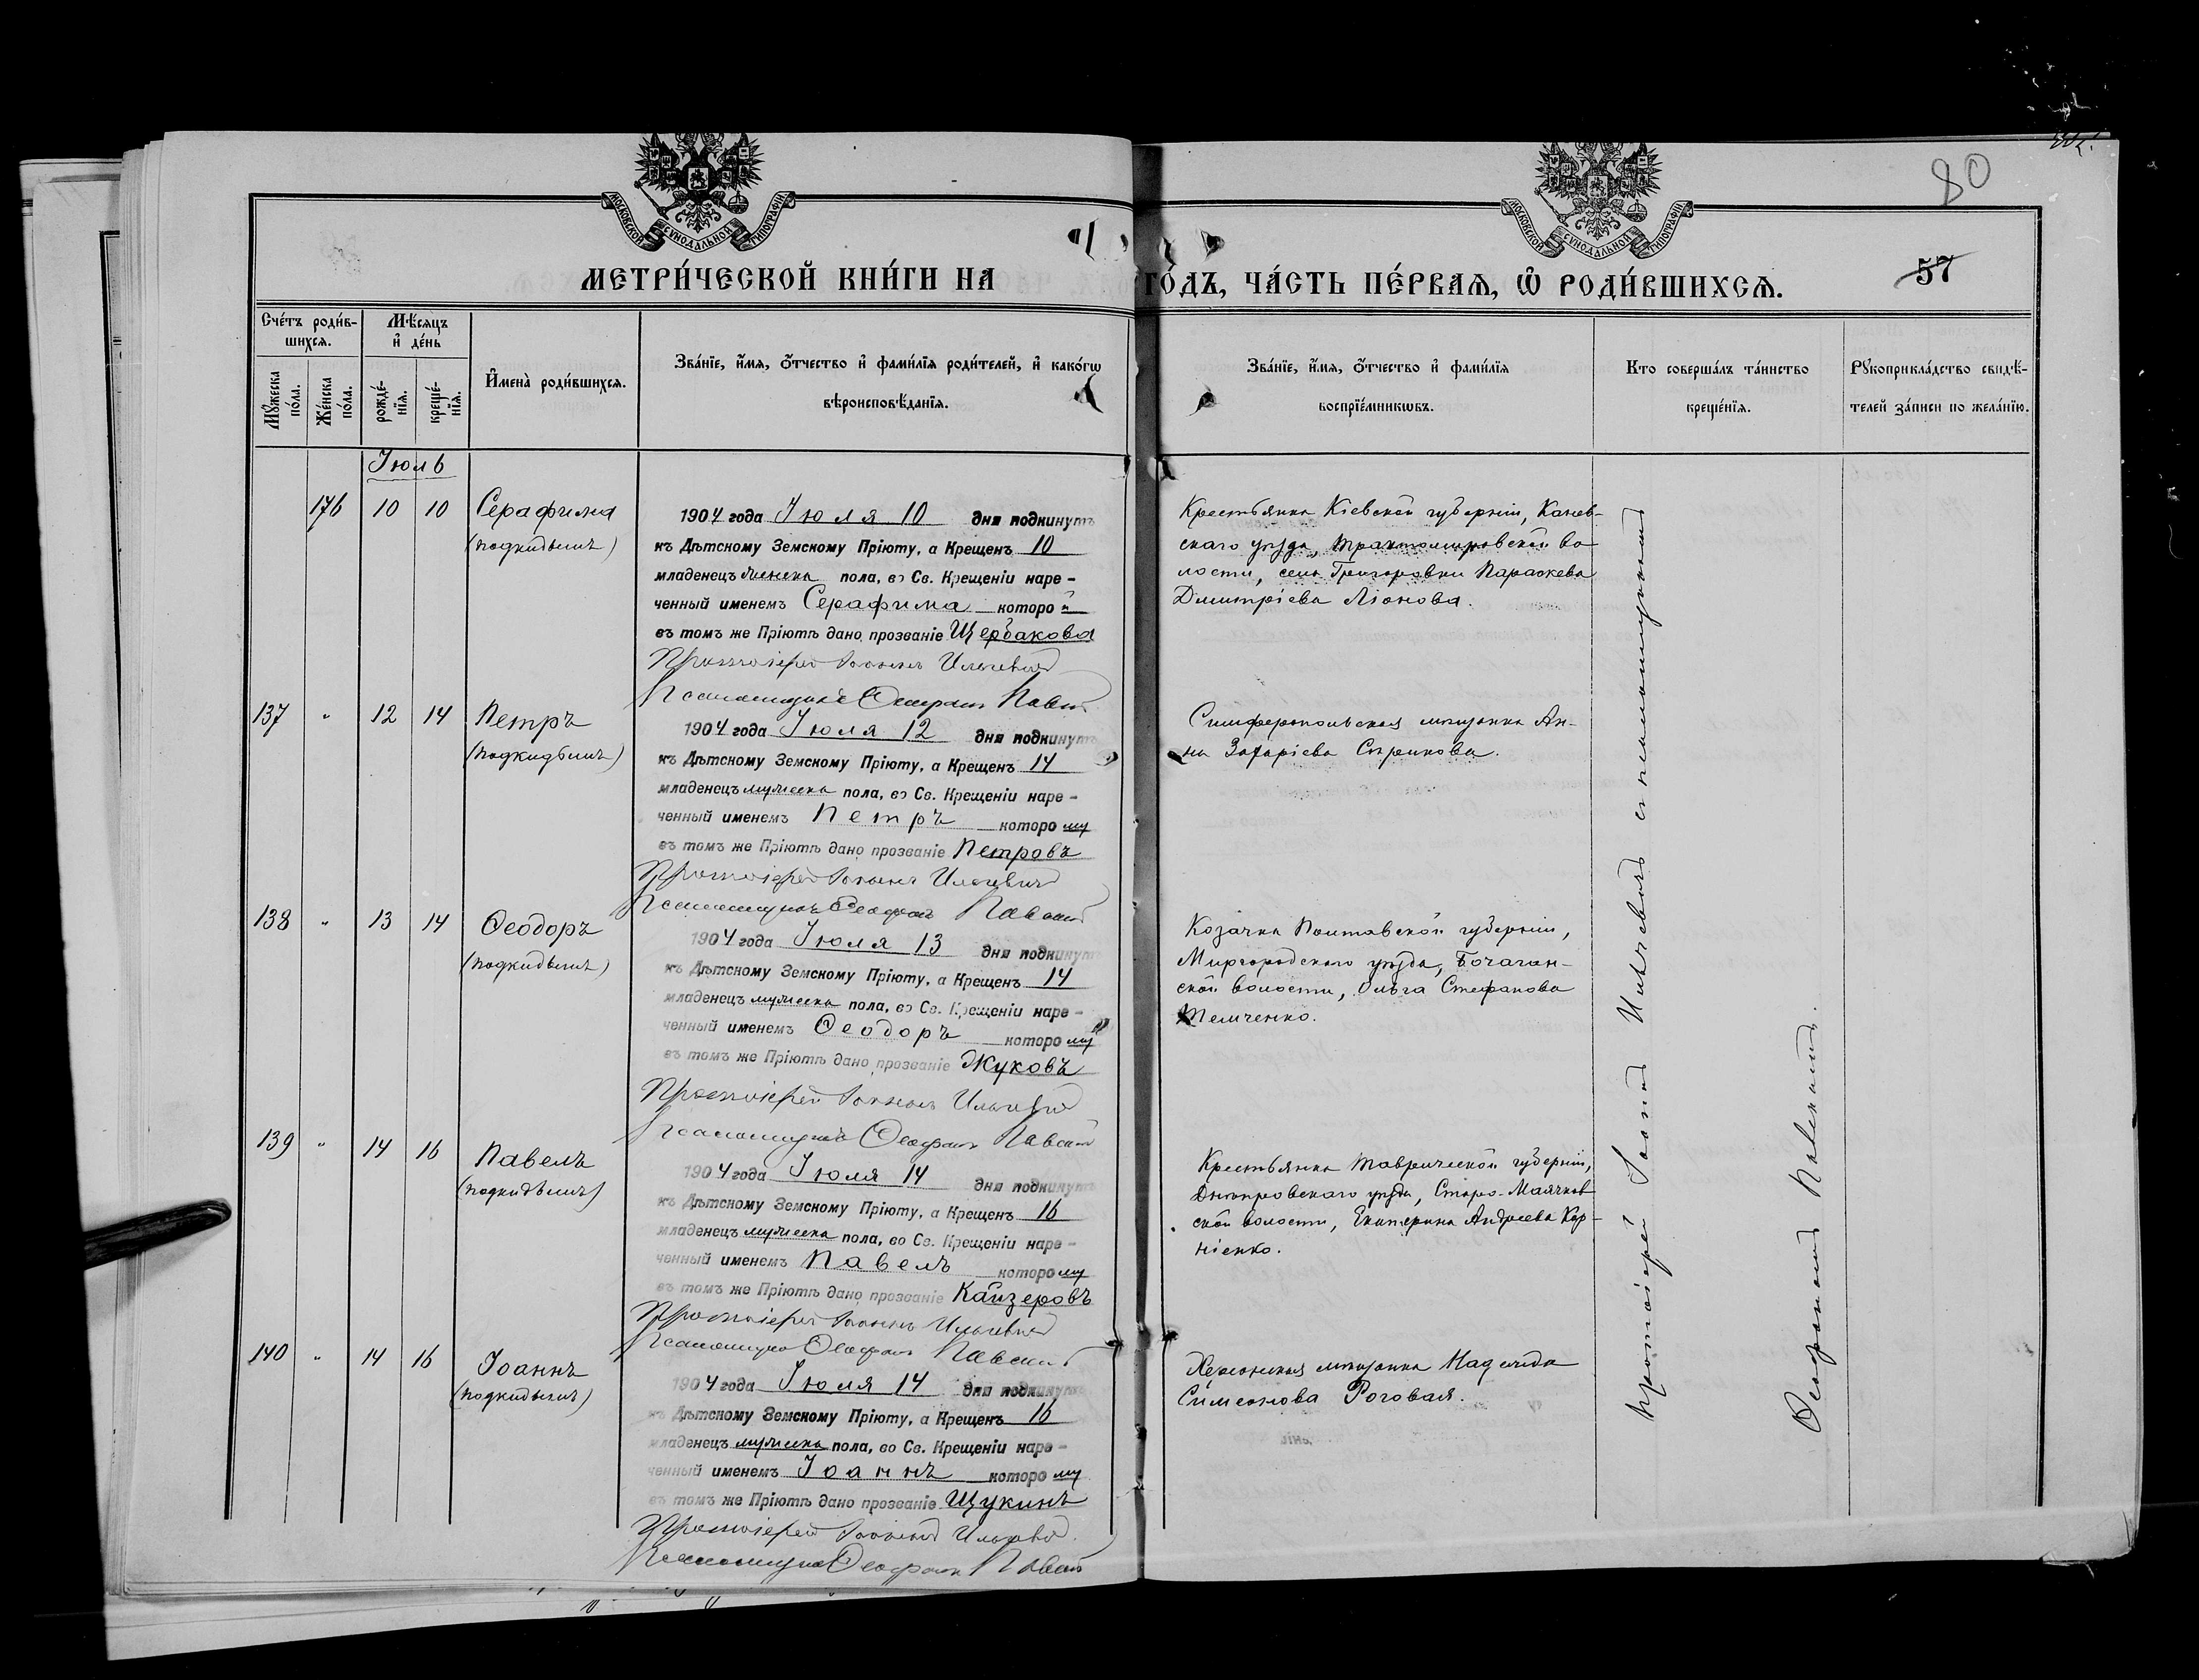 80
МОСКОВСКОЙ СѴНОДАЛЬНОЙ ТИПОГРАФІИ
МОСКОВСКОЙ СѴНОДАЛЬНОЙ ТИПОГРАФІИ
МЕТРИ́ЧЕСКОЙ КНИ́ГИ НА ГО́ДЪ, ЧА́СТЬ ПЕ́РВАЯ, Ѽ РОДИ́ВШИХСЯ.
57
Сче́тъ роди́в-
шихся.
Мѣ́сяцъ
и҆ де́нь
Мꙋ́жеска
по́ла.
Же́нска
по́ла.
рожде́-
нїя.
креще́-
нїя.
И҆мена̀ роди́вшихся.
Зва́нїе, и҆́мя, ѻ҆́тчество и҆ фами́лїя роди́телей, и҆ како́гѡ
вѣроисповѣ́данїя.
Зва́нїе, и҆́мя, ѻ҆́тчество и҆ фами́лїя
воспрїе́мникѡвъ.
Кто соверша́лъ та́инство
креще́нїя.
Рꙋкоприкла́дство свидѣ́-
телей за́писи по жела́нїю.
Іюль
176 10 10 Серафима
(подкидышъ)
1904 года Іюля 10 дня подкинутъ
къ Дѣтскому Земскому Пріюту, а Крещенъ 10
младенецъ женска пола, во Св. Крещеніи наре-
ченный именемъ Серафима которой
въ томъ же Пріютѣ дано прозваніе Щербакова
Протоіерей Іоаннъ Ильчевичъ
Псаломщикъ Ѳеофанъ Павскій
Крестьянка Кіевской губерніи, Канев-
скаго уѣзда, Трактомировской во
лости, села Григоровки Параскева
Димитріева Ліонова.
137 " 12 14 Петръ
(подкидышъ)
1904 года Іюля 12 дня подкинутъ
къ Дѣтскому Земскому Пріюту, а Крещенъ 14
младенецъ мужеска пола, во Св. Крещеніи наре-
ченный именемъ Петръ которому
въ томъ же Пріютѣ дано прозваніе Петровъ
Протоіерей Іоаннъ Ильчевичъ
Псаломщикъ Ѳеофанъ Павскій
Симферопольская мѣщанка Ан-
на Захаріева
138 " 13 14 Ѳеодоръ
(подкидышъ)
1904 года Іюля 13 дня подкинутъ
къ Дѣтскому Земскому Пріюту, а Крещенъ 14
младенецъ мужеска пола, во Св. Крещеніи наре-
ченный именемъ Ѳеодоръ которому
въ томъ же Пріютѣ дано прозваніе Жуковъ
Протоіерей Іоаннъ Ильчевичъ
Псаломщикъ Ѳеофанъ Павскій
Козачка Полтавской губерніи,
Миргородскаго уѣзда,
ской волости, Ольга Стефанова
Темченко.
139 " 14 16 Павелъ
(подкидышъ)
1904 года Іюля 14 дня подкинутъ
къ Дѣтскому Земскому Пріюту, а Крещенъ 16
младенецъ мужеска пола, во Св. Крещеніи наре-
ченный именемъ Павелъ которому
въ томъ же Пріютѣ дано прозваніе Кайзеровъ
Протоіерей Іоаннъ Ильчевичъ
Псаломщикъ Ѳеофанъ Павскій
Крестьянка Таврической губерніи,
Днѣпровскаго уѣзда, Старо-Маячков
ской волости, Екатерина Андреева Кор-
ніенко.
140 " 14 16 Іоаннъ
(подкидышъ)
1904 года Іюля 14 дня подкинутъ
къ Дѣтскому Земскому Пріюту, а Крещенъ 16
младенецъ мужеска пола, во Св. Крещеніи наре-
ченный именемъ Іоаннъ которому
въ томъ же Пріютѣ дано прозваніе Щукинъ
Протоіерей Іоаннъ Ильчевичъ
Псаломщикъ Ѳеофанъ Павскій
Херсонская мѣщанка Надежда
Симеонова Роговая.
Протоіерей Іоаннъ Ильчевичъ съ псаломщикомъ
Ѳеофаномъ Павскимъ.